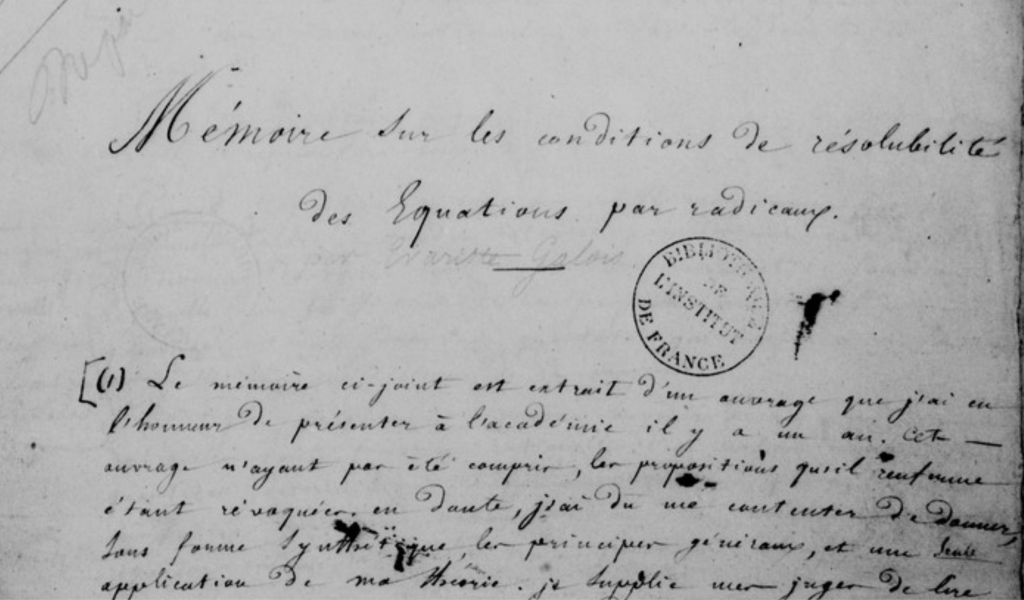 Mémoire sur les conditions de résolubilité
des Equations par radicaux.
par Evariste Galois.
BIBLIOTHÈQUE
DE
L'INSTITUT
DE FRANCE
[(1) Le mémoire ci-joint est extrait d'un ouvrage que j'ai eu
l'honneur de présenter à l'académie il y a un an. Cet —
ouvrage n'ayant pas été compris, les propositions qu'il renferme
étant révoquées en doute, j'ai dû me contenter de donner,
sous forme synthétique, les principes généraux, et une seule
application de ma théorie. je supplie mes juges de lire